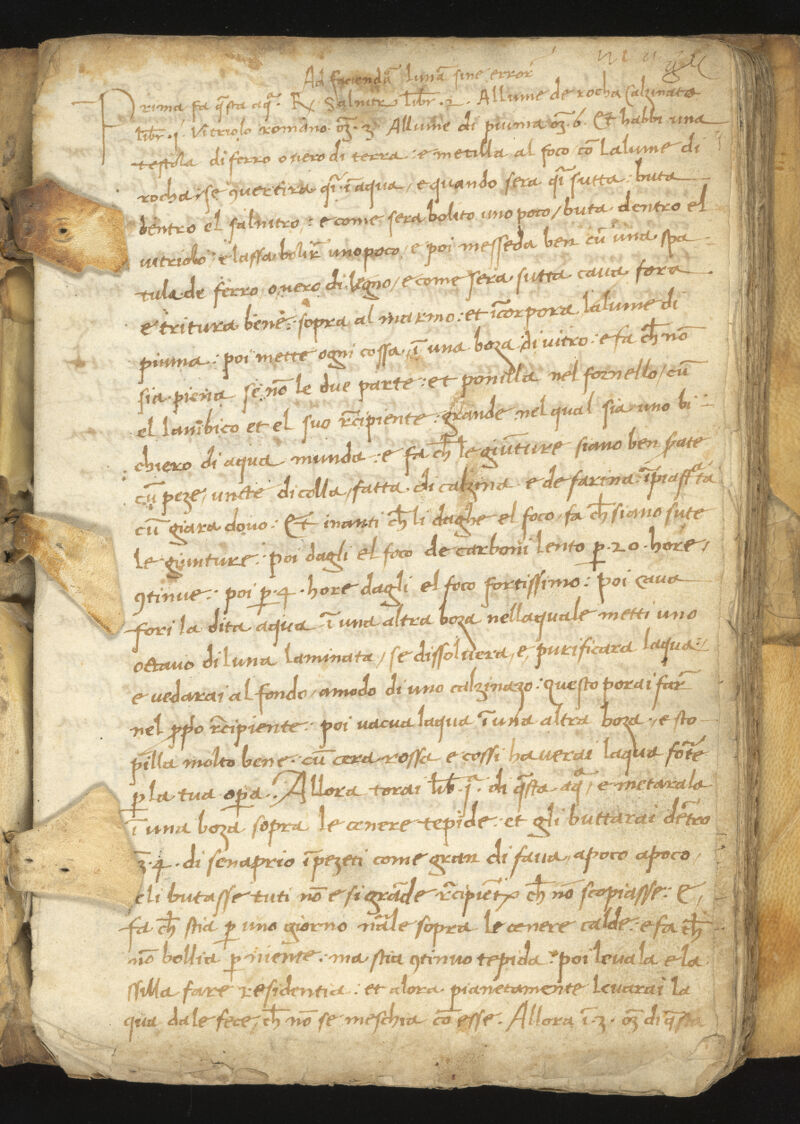 Ad faciendã lunã sine error
Prima fa q̃sta aq̃. Rx Salnitro libr̃. 2. Allume de rocha calzinato
libr̃. 1. Vitriolo romano. oz̃. 3. Allume di piuma oz̃. 6. Et habbi una
testola di ferro overo di terra: e metilla al foco cõ lalume di
rocha: se ꝯvertira qĩ ĩ aqua, e quando sera qĩ sutta: buta
dentro el salnitro: e come sera bolito uno poco, buta dentro el
vitriolo: e lassa bolir̃ uno poco, e poi messeda ben cũ una spa-
tula de ferro, overo di legno, e come sera sutta cava fora
e tritura bene: sopra al marmo: et ĩcorpora lalume di
piuma: poi mette ogni cossa ĩ una boza di vitro: e fa ch̃ nõ
sia piena se nõ le due parte: et ponilla nel fornello, cũ
el lambico et el suo rc̃ipiente: grande nel qual sia uno bi-
chiero di aqua munda: e fa ch̃ le giunture siano ben ẜrate
cũ peze, uncte di colla, fatta di calzina e de farina ĩpiastrata
cũ giara dovo: Et inanti ch̃ li daghe el foco, fa ch̃ siano sute
le giunture: poi dagli el foco de carboni lento ꝑ. 20. hore,
ꝯtinue: poi ꝑ. 4. hore dagli el foco fortissimo: poi cava
fori la dita aqua ĩ una altra boza nellaquale metti uno
octavo di luna laminata, se dissolvera, e purificara laqua:
e vedarai al fondo, amodo di uno calzinazo: questo porai far̃
nel ꝓp̃o rc̃ipiente: poi vacua laqua ĩ una altra boza, e sto-
pilla molto bene: cũ cera rossa e cossi haverai laqua fort̃e
ꝑ la tua oꝑa. Allora torai lib̃. j̃. di q̃sta aq̃, e metarala
ĩ una boza sopra le cenere tepide: et gli buttarai dẽtro
oz̃. 4. di senaprio ĩ pezeti come gran di fava, apoco apoco,
eli butasse tuti nõ e si grãde rc̃ipient̃ ch̃ nõ scopiasse: E,
fa ch̃ stia ꝑ uno giorno nãle sopra le cenere calde: e fa ch̃
nõ bollia ꝑ niente: ma stia ꝯtinuo tepida: poi levala e la
ssilla fare residentia: et alora pianetamente levarai la
qua dale fece, ch̃ nõ se meschia cõ esse. Allora ĩ. 3. oz̃ di q̃sta